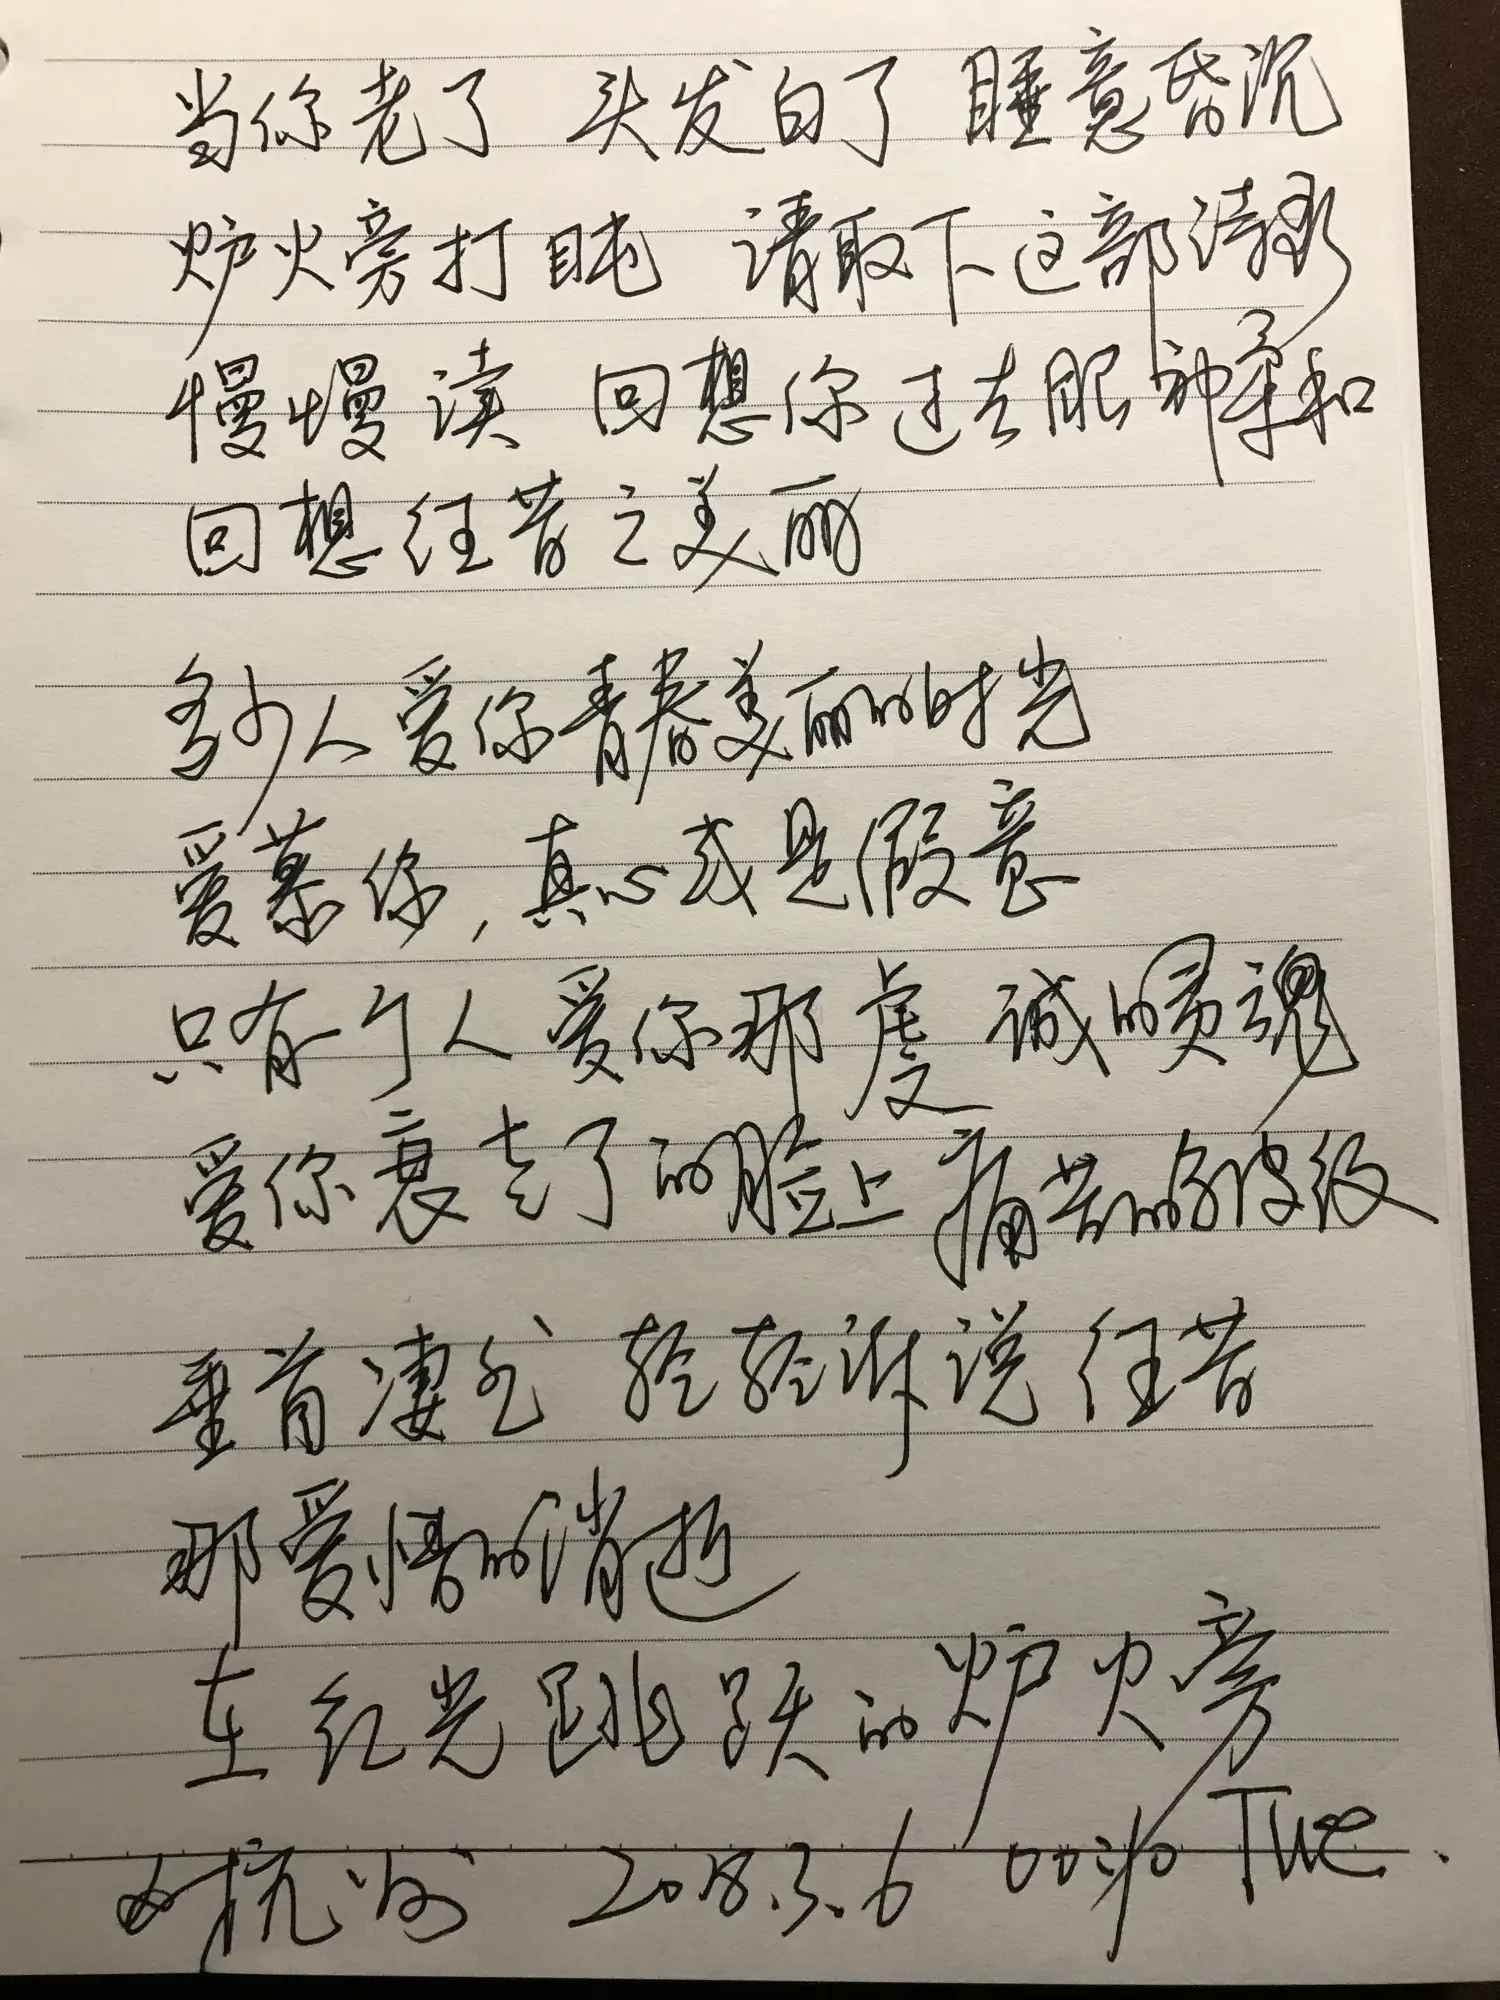 当你老了 头发白了 睡意昏沉
炉火旁打盹 请取下这部诗歌
慢慢读 回想你过去眼神柔和
回想往昔之美丽
多少人爱你青春美丽的时光
爱慕你,真心或是假意
只有个人爱你那虔诚的灵魂
爱你衰老了的脸上痛苦的皱纹
垂首凄然 轻轻诉说往昔
那爱情的消逝
在红光跳跃的炉火旁
2018.3.6 Tue.